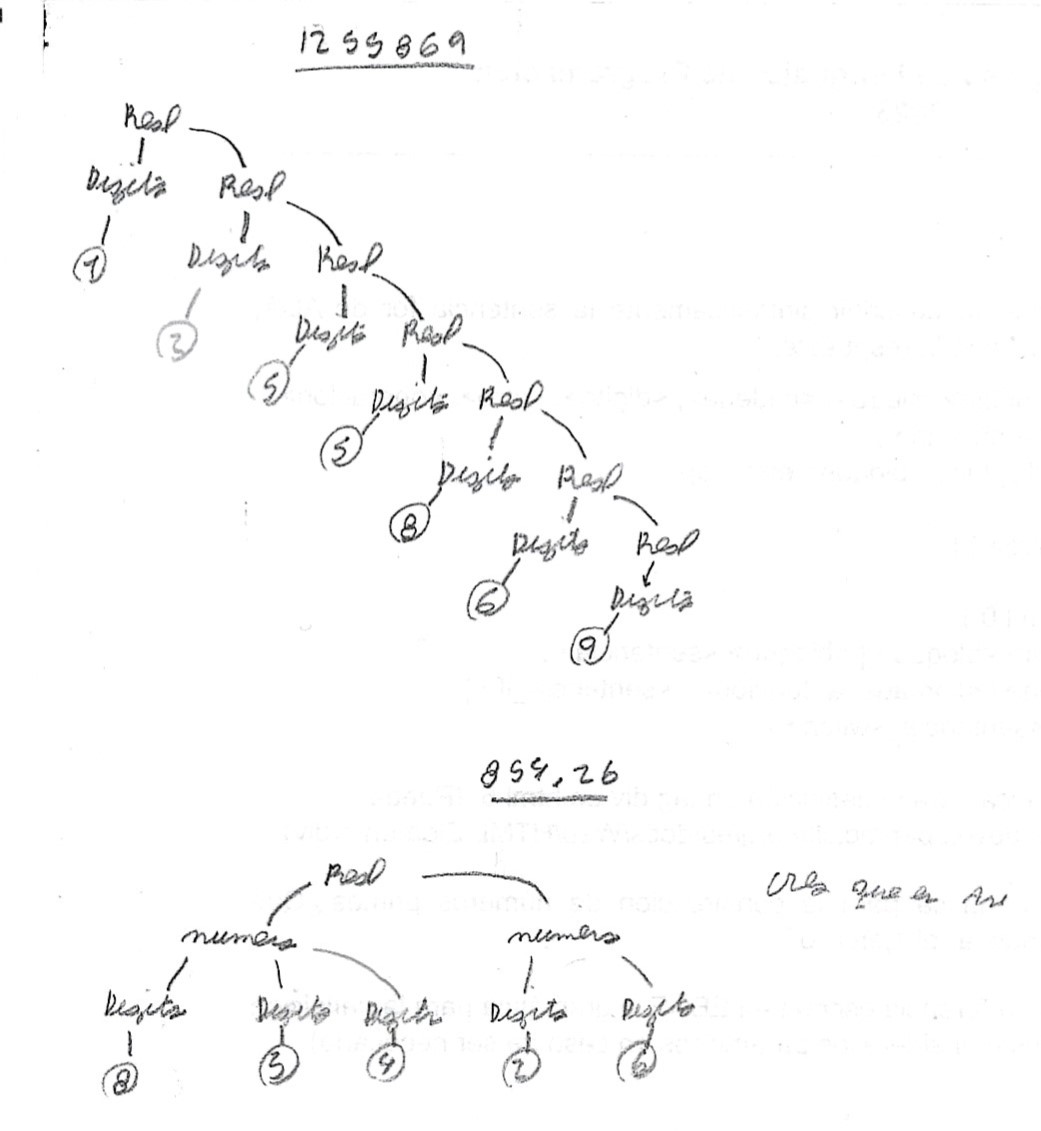 1255869
Real
Digito Real
1 Digito Real
2 Digito Real
5 Digito Real
5 Digito Real
8 Digito Real
6 Digito
9
854,26
Real
creo que es asi
numero numero
Digito Digito Digito Digito Digito
8 5 4 2 6